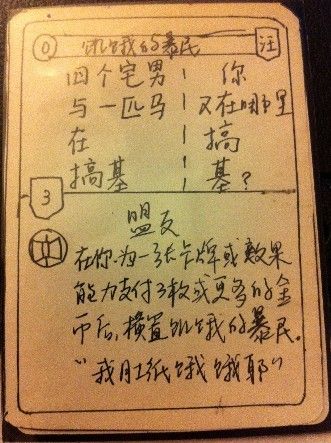 0 饥饿的暴民
四个宅男 你
与一匹马 又在哪里
在 搞
搞基 基?
3
盟友
在你为一张卡牌或效果
能力支付3枚或更多的金
币后,横置饥饿的暴民。
“我肚纸饿饿耶”